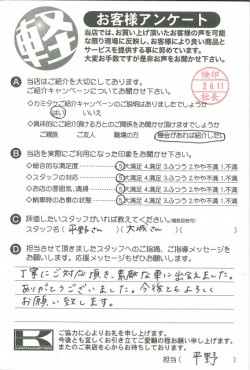 軽
お客様アンケート
当店では、お買い上げ頂いたお客様の声を可能
な限り現場に反映し、お客様により良い商品と
サービスを提供する事に努めています。
大変お手数ですが是非お声をお聞かせ下さい。
検印
26.11
社長
A 当店はご紹介を大切にしてあります。
ご紹介キャンペーンについてお聞かせ下さい。
◇カミタケご紹介キャンペーンのご説明はありましたでしょうか
はい いいえ
◇具体的にご紹介頂ける方とのご関係をお聞かせ頂けますでしょうか
ご親族 ご友人 職場の方 機会があれば紹介したい
B 当店を実際にご利用になった印象をお聞かせ下さい。
◇総合的な満足度 5大満足 4.満足 3.ふつう 2.やや不満 1.不満
◇スタッフの対応 5大満足 4.満足 3.ふつう 2.やや不満 1.不満
◇お店の雰囲気,清掃 5大満足 4.満足 3.ふつう 2.やや不満 1.不満
◇納車時のお車の状態 5大満足 4.満足 3.ふつう 2.やや不満 1.不満
C 評価したいスタッフがいれば教えてください。(複数回答可)
スタッフ名( 平野さん )( 大城さん )
D 担当させて頂きましたスタッフへのご指摘、ご指導メッセージをお
願いします。応援メッセージもぜひお願い致します。
丁寧にご対応頂き、素敵な車に出会えました。
ありがとうございました。今後ともよろしく
お願い致します。
K
ご協力に心よりお礼を申し上げます。
今後とも宜しくお引き立てご愛顧の程お願い申し上げます。
またのご来店を心からお待ちしております。
担当( 平野 )